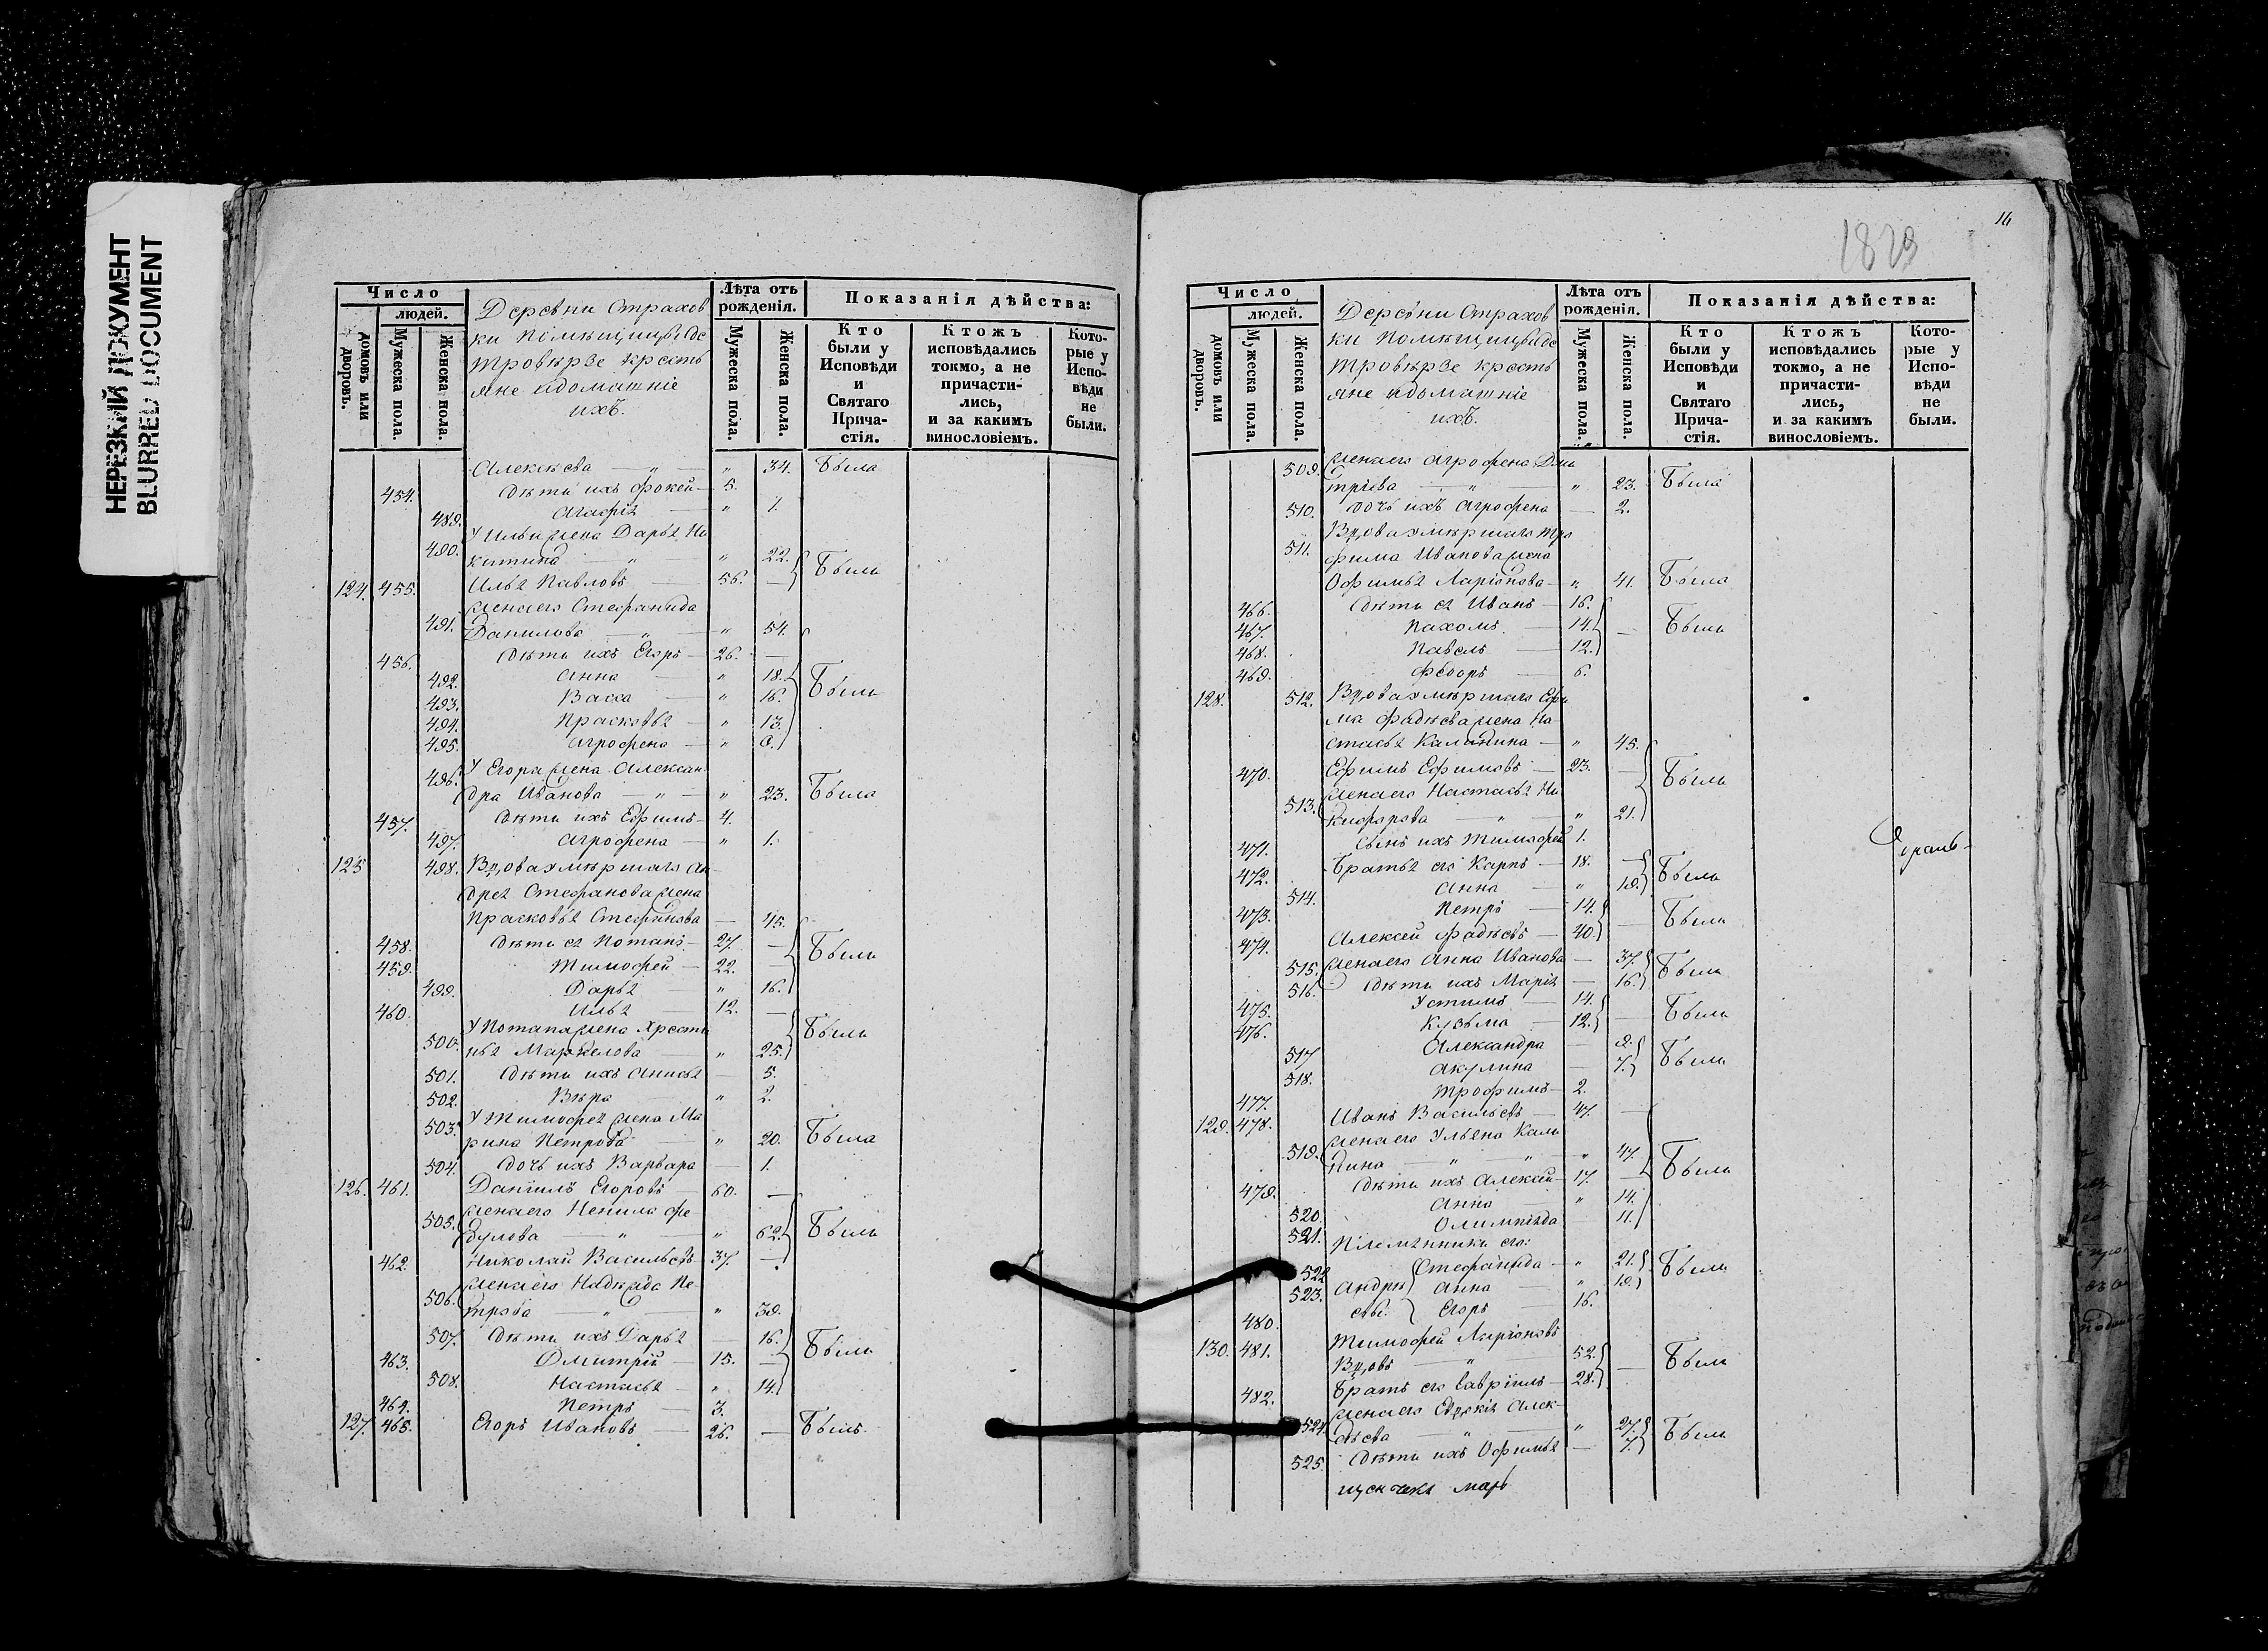 НЕРЕЗКИЙ ДОКУМЕНТ
BLURRED DOCUMENT
Число
людей.
домовъ или дворовъ.
Мужеска пола.
Женска пола.
Деревни Страхов
ки
крестъ
яне идомашніе
ихъ.
Лѣта отъ рожденія.
Мужеска пола.
Женска пола.
Показанія дѣйства:
Кто были у Исповѣди и Святаго Прича-стія.
Ктожъ исповѣдались токмо, а не причасти-лись, и за какимъ винословіемъ.
Кото-рые у Испо-вѣди не были.
Алексѣева — „ — „ 34. Была
454. Дѣти ихъ Фокей — 5.
489. Агафія — „ 1.
490. У Ильи жена Дарья Ни
китина „ „ 22. Были
124. 455. Илья Павловъ — 56. —
491. жена его Стефанида
Данилова — „ — „ 54.
456. Дѣти ихъ Егоръ — 26. —
492. Анна — „ 18. Были
493. Васса — „ 16.
494. Прасковья — „ 13.
495. Агрофена — „ 9.
496. У Егора жена Алексан
дра Иванова — „ — „ 23. Была
457. Дѣти ихъ Ефимъ — 4.
497. Агрофена — „ 1.
125 498. Вдова умѣршаго Ан
дрея Стефанова жена
Прасковья Стефанова — 45.
458. Дѣти ея Потапъ — 27. — Были
459. Тимофей — 22. —
499. Дарья — „ 16.
460. Илья 12. —
500. У Потапа жена Хрести
нья Маркелова — „ 25. Были
501. Дѣти ихъ Анисья — 5.
502. Вѣра „ 2.
503. У Тимофея жена Ма
рина Петрова — „ 20. Была
504. Дочь ихъ Варвара — 1.
126. 461. Даніилъ Егоровъ — 60. —
505. жена его Ненила Фе
дулова — „ — „ 62. Были
462. Николай Васильевъ 37. —
506. жена его Надежда Пе
трова — „ — „ 39.
507. Дѣти ихъ Дарья — 16.
463. Дмитрій — 15. — Были
508. Настасья — „ 14.
464. Петръ — 3.
127. 465. Егоръ Ивановъ — 26. — Былъ
14
1829
Число
людей.
домовъ или дворовъ.
Мужеска пола.
Женска пола.
Деревни Страхов
ки
крестъ
яне идомашніе
ихъ.
Лѣта отъ рожденія.
Мужеска пола.
Женска пола.
Показанія дѣйства:
Кто были у Исповѣди и Святаго Прича-стія.
Ктожъ исповѣдались токмо, а не причасти-лись, и за какимъ винословіемъ.
Кото-рые у Испо-вѣди не были.
509. жена его Агрофена Дми
тріева — „ — „ 23. Была
510. Дочь ихъ Агрофена — 2.
511. Вдова умѣршаго Тро
фима Иванова жена
Офимья Ларіонова — „ 41. Была
466. Дѣти ея Иванъ — 16.
467. Пахомъ — 14. — Были
468. Павелъ — 12.
469. Фѣдоръ — 6.
128. 512. Вдова умѣршаго Ефи
ма Фадѣева жена На
стасья Калинина — „ 45.
470. Ефимъ Ефимовъ — 23. — Были
513. жена его Настасья Ни
кифорова — „ — „ 21.
471. Сынъ ихъ Тимофей 1.
472. Братья его Карпъ — 18. — Были
514. Анна — „ 19.
473. Петръ — 14. — Были
474. Алексей Фадѣевъ — 40.
515. жена его Анна Иванова — 37. Были
516. Дѣти ихъ Марія — 16.
475. Устимъ — 14. — Были
476. Кузьма — 12.
517 Александра — 9. Были
518. Акулина — 7.
477. Трофимъ — 2.
129. 478. Иванъ Васильевъ — 47. —
519. жена его Ульяна Кали
нина „ „ „ 47. Были
479. Дѣти ихъ Алексей — 17. —
520. Анна „ 14.
521. Олимпіяда 11.
Племянники его:
522 Стефанида — „ 21. Были
523. Андрѣ Анна — „ 19.
480. евы. Егоръ — 16.
130. 481. Тимофей Ларіоновъ
Вдовъ — „ 52. — Были
482. Братъ его Гавріилъ — 28.
524. жена его Евдокія Алек
сѣева „ „ 27. Были
525. Дѣти ихъ Офимья — 7.